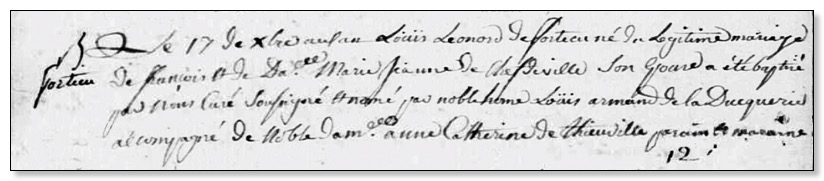 B Le 17 de Xbre au San Loüis Leonord de Sortieu né du Legitime mariage
Sortieu de francois Et de Da.elle Marie jeanne de Son Epouse a été baptisé
par Nous Curé Soussigné Et nomé par noble home Loüis armand de la Ducquerie
accompagné de Noble dam.elle anne Catherine de thieuville parain Et maraine
12